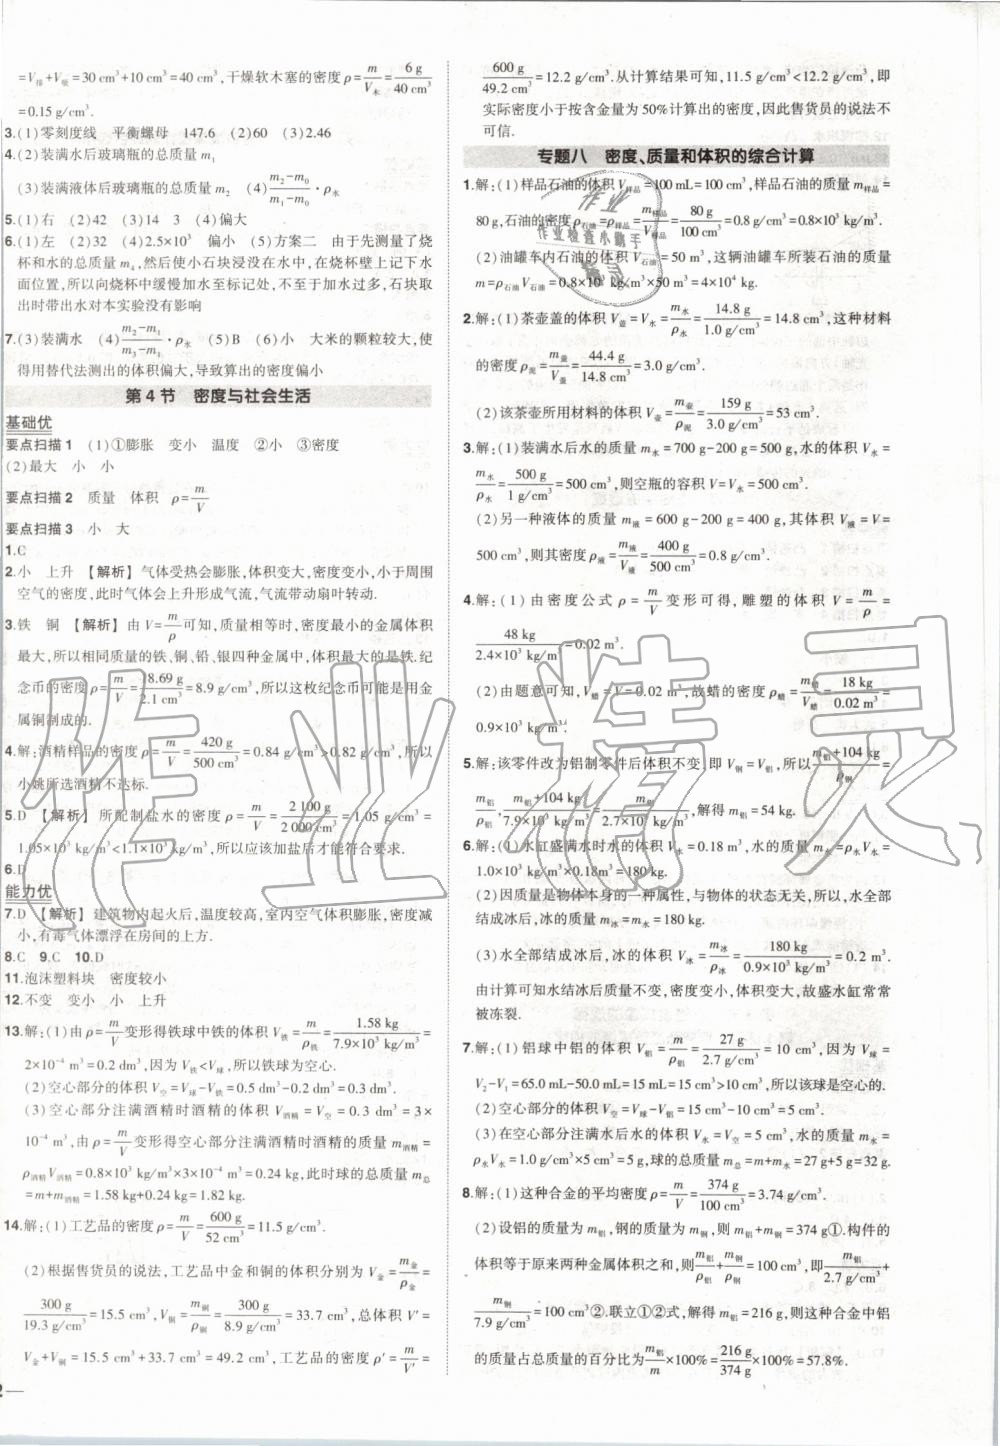 =V排+V吸=30 cm³+10 cm³=40 cm³,干燥软木塞的密度ρ=m/V木=6 g/40 cm³
=0.15 g/cm³.
3.(1)零刻度线 平衡螺母 147.6 (2)60 (3)2.46
4.(2)装满水后玻璃瓶的总质量 m₁
(3)装满液体后玻璃瓶的总质量 m₂ (4)(m₂-m₀)/(m₁-m₀)·ρ水
5.(1)右 (2)42 (3)14 3 (4)偏大
6.(1)左 (2)32 (4)2.5×10³ 偏小 (5)方案二 由于先测量了烧
杯和水的总质量 m₄,然后使小石块浸没在水中,在烧杯壁上记下水
面位置,所以向烧杯中缓慢加水至标记处,不至于产生误差,石块取
出时带出水对本实验没有影响
7.(3)装满水 (4)(m₂-m₁)/(m₃-m₁)·ρ水 (5)B (6)小 大米的颗粒较大,使
得用替代法测出的体积偏大,导致算出的密度偏小
第 4 节 密度与社会生活
基础优
要点扫描 1 (1)①膨胀 变小 温度 ②小 ③密度
(2)最大 小 小
要点扫描 2 质量 体积 ρ=m/V
要点扫描 3 小 大
1.C
2.小 上升 【解析】气体受热会膨胀,体积变大,密度变小,小于周围
空气的密度,此时气体会上升形成气流,气流带动扇叶转动.
3.铁 铜 【解析】由V=m/ρ可知,质量相等时,密度最小的金属体积
最大,所以相同质量的铁、铜、铅、银四种金属中,体积最大的是铁.纪
念币的密度ρ=m/V=18.69 g/2.1 cm³=8.9 g/cm³,所以这枚纪念币可能是用
金属铜制成的.
4.解:酒精样品的密度ρ=m/V=420 g/500 cm³=0.84 g/cm³>0.82 g/cm³,所以
小姚所选酒精不达标.
5.D 【解析】所配制盐水的密度ρ=m/V=2 100 g/2 000 cm³=1.05 g/cm³=
1.05×10³ kg/m³<1.1×10³ kg/m³,所以应该加盐后才能符合要求.
6.D
能力优
7.D 【解析】建筑物内起火后,温度较高,室内空气体积膨胀,密度减
小,有毒气体漂浮在房间的上方.
8.C 9.C 10.D
11.泡沫塑料块 密度较小
12.不变 变小 小 上升
13.解:(1)由ρ=m/V变形得铁球中铁的体积V铁=m/ρ铁=1.58 kg/7.9×10³ kg/m³=
2×10⁻⁴ m³=0.2 dm³,因为V铁<V球,所以铁球为空心.
(2)空心部分的体积V空=V球-V铁=0.5 dm³-0.2 dm³=0.3 dm³.
(3)空心部分注满酒精时酒精的体积V酒精=V空=0.3 dm³=3×
10⁻⁴ m³,由ρ=m/V变形得空心部分注满酒精时酒精的质量m酒精=
ρ酒精V酒精=0.8×10³ kg/m³×3×10⁻⁴ m³=0.24 kg,此时球的总质量m总
=m+m酒精=1.58 kg+0.24 kg=1.82 kg.
14.解:(1)工艺品的密度ρ=m/V=600 g/52 cm³=11.5 g/cm³.
(2)根据售货员的说法,工艺品中金和铜的体积分别为V金=m金/ρ金=
300 g/19.3 g/cm³=15.5 cm³,V铜=m铜/ρ铜=300 g/8.9 g/cm³=33.7 cm³,总体积V′=
V金+V铜=15.5 cm³+33.7 cm³=49.2 cm³,工艺品的密度ρ′=m/V′=
600 g/49.2 cm³=12.2 g/cm³.从计算结果可知,11.5 g/cm³<12.2 g/cm³,即
实际密度小于按含金量为50%计算出的密度,因此售货员的说法不
可信.
专题八 密度、质量和体积的综合计算
1.解:(1)样品石油的体积V样品=100 mL=100 cm³,样品石油的质量m样品=
80 g,石油的密度ρ石油=ρ样品=m样品/V样品=80 g/100 cm³=0.8 g/cm³=0.8×10³ kg/m³.
(2)油罐车内石油的体积V石油=50 m³,这辆油罐车所装石油的质
量m=ρ石油V石油=0.8×10³ kg/m³×50 m³=4×10⁴ kg.
2.解:(1)茶壶盖的体积V盖=V水=m水/ρ水=14.8 g/1.0 g/cm³=14.8 cm³,这种材料
的密度ρ泥=m盖/V盖=44.4 g/14.8 cm³=3.0 g/cm³.
(2)该茶壶所用材料的体积V壶=m壶/ρ泥=159 g/3.0 g/cm³=53 cm³.
3.解:(1)装满水后水的质量m水=700 g-200 g=500 g,水的体积V水=
m水/ρ水=500 g/1 g/cm³=500 cm³,则空瓶的容积V=V水=500 cm³.
(2)另一种液体的质量m液=600 g-200 g=400 g,其体积V液=V=
500 cm³,则其密度ρ液=m液/V液=400 g/500 cm³=0.8 g/cm³.
4.解:(1)由密度公式ρ=m/V变形可得,雕塑的体积V=m/ρ=
48 kg/2.4×10³ kg/m³=0.02 m³.
(2)由题意可知,V蜡=V=0.02 m³,故蜡的密度ρ蜡=m蜡/V蜡=18 kg/0.02 m³=
0.9×10³ kg/m³.
5.解:该零件改为铝制零件后体积不变,即V钢=V铝,所以(m铝+104 kg)/ρ钢=
m铝/ρ铝,(m铝+104 kg)/7.9×10³ kg/m³=m铝/2.7×10³ kg/m³,解得m铝=54 kg.
6.解:(1)水缸盛满水时水的体积V水=0.18 m³,水的质量m水=ρ水V水=
1.0×10³ kg/m³×0.18 m³=180 kg.
(2)因质量是物体本身的一种属性,与物体的状态无关,所以,水全部
结成冰后,冰的质量m冰=m水=180 kg.
(3)水全部结成冰后,冰的体积V冰=m冰/ρ冰=180 kg/0.9×10³ kg/m³=0.2 m³,
由计算可知水结冰后质量不变,密度变小,体积变大,故盛水缸常常
被冻裂.
7.解:(1)铝球中铝的体积V铝=m/ρ铝=27 g/2.7 g/cm³=10 cm³,因为V球=
V₂-V₁=65.0 mL-50.0 mL=15 mL=15 cm³>10 cm³,所以该球是空心的.
(2)空心部分的体积V空=V球-V铝=15 cm³-10 cm³=5 cm³.
(3)在空心部分注满水后水的体积V水=V空=5 cm³,水的质量m水=
ρ水V水=1.0 g/cm³×5 cm³=5 g,球的总质量m总=m+m水=27 g+5 g=32 g.
8.解:(1)这种合金的平均密度ρ=m/V=374 g/100 cm³=3.74 g/cm³.
(2)设铝的质量为m铝,钢的质量为m钢,则m铝+m钢=374 g①.构件的
体积等于原来两种金属体积之和,则m铝/ρ铝+m钢/ρ钢=100 cm³,即m铝/2.7 g/cm³+
m钢/7.9 g/cm³=100 cm³②.联立①②式,解得m铝=216 g,则这种合金中铝
的质量占总质量的百分比为m铝/m×100%=216 g/374 g×100%=57.8%.
作业
作业检查小助手
精灵
作业精灵